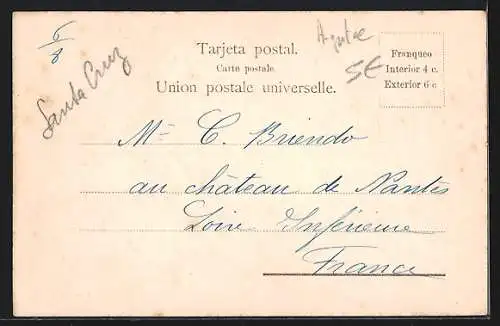 6/8
Santa Cruz
Tarjeta postal.
Carte postale.
Union postale universelle.
5€
Franqueo
Interior 4 c.
Exterior 6 c
C. Briendo
au château de Nantes
Loire Inférieure
France